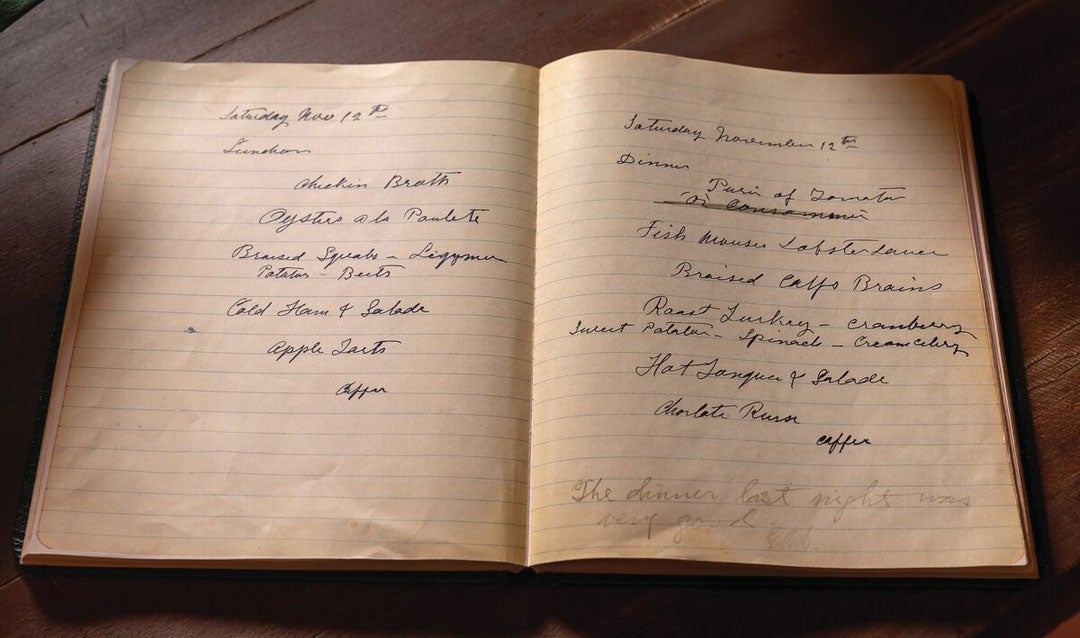 Saturday Nov 12th
Luncheon
Chicken Broth
Oysters a la Paulete
Braised Squabs - Legumes
Potatoes - Beets
Cold Ham & Salade
Apple Tarts
Coffee
Saturday November 12th
Dinner
Puree of Tomato
or Consommee
Fish Mousse Lobster Sauce
Braised Calfs Brains
Roast Turkey - Cranberry
Sweet Potatoes - Spinach - Cream Celery
Hot Tongue & Salade
Charlote Russe
Coffee
The dinner last night was
very good